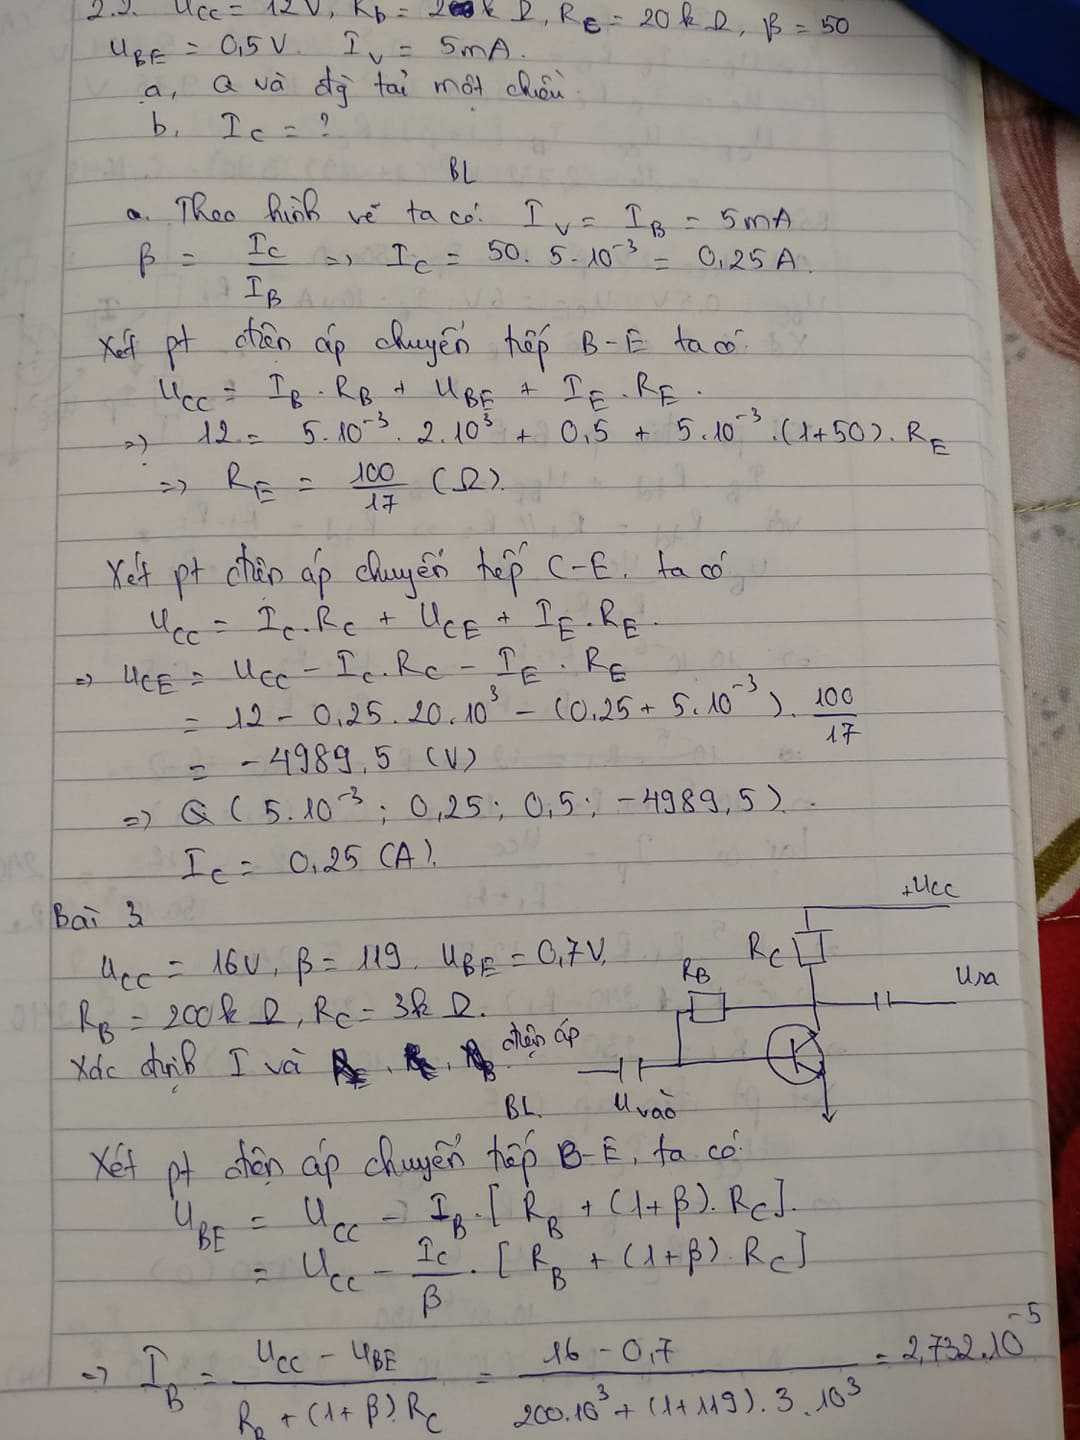 2.2. Ucc = 12V, Rb = 2 k Ω, RE = 20 k Ω, β = 50
UBE = 0,5V. Iv = 5mA.
a, Q và đg tải một chiều
b, Ic = ?
BL
a. Theo hình vẽ ta có: Iv = IB = 5mA
β = Ic/IB => Ic = 50. 5.10⁻³ = 0,25A.
Xét pt điện áp chuyển tiếp B-E ta có:
Ucc = IB.RB + UBE + IE.RE.
=> 12 = 5.10⁻³. 2.10³ + 0,5 + 5.10⁻³.(1+50).RE
=> RE = 100/17 (Ω).
Xét pt điện áp chuyển tiếp C-E, ta có
Ucc = Ic.Rc + UCE + IE.RE.
=> UCE = Ucc - Ic.Rc - IE.RE
= 12 - 0,25.20.10³ - (0,25 + 5.10⁻³).100/17
= -4989,5 (V)
=> Q (5.10⁻³; 0,25; 0,5; -4989,5).
Ic = 0,25 (A).
Bài 3
+Ucc
Ucc = 16V, β = 119. UBE = 0,7V.
Rc
RB
Ura
RB = 200k Ω, Rc = 3k Ω.
Xác định I và điện áp
Uvào
BL.
Xét pt điện áp chuyển tiếp B-E, ta có:
UBE = Ucc - IB.[RB + (1+β).Rc].
= Ucc - Ic/β.[RB + (1+β).Rc]
=> IB = (Ucc - UBE)/(RB + (1+β).Rc) = (16 - 0,7)/(200.10³ + (1+119).3.10³) = 2,732.10⁻⁵